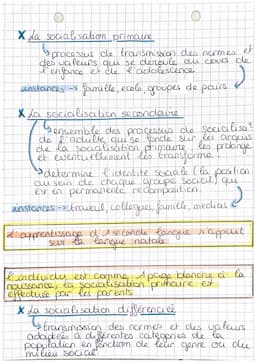 x La socialisation primaire
↳ processus de transmission des normes et
des valeurs qui se déroule au cours de
l'enfance et de l'adolescence
instances → famille, école, groupes de pairs
x La socialisation secondaire
↳ ensemble des processus de socialisa°
de l'adulte, qui se fonde sur les acquis
de la socialisation primaire, les prolonge
et éventuellement les transforme.
↳ détermine l'identité sociale (la position
au sein de chaque groupe social) qui
est en permanente recomposition
instances → travail, collègues, famille, médias
L'apprentissage d'1 seconde langue s'appuit
sur la langue natale
L'individu est comme 1 page blanche à la
naissance, la socialisation primaire est
effectuée par les parents
x La socialisation différenciée
↳ transmission des normes et des valeurs
adaptées à différentes catégories de la
population en fonction de leur genre ou du
milieu social